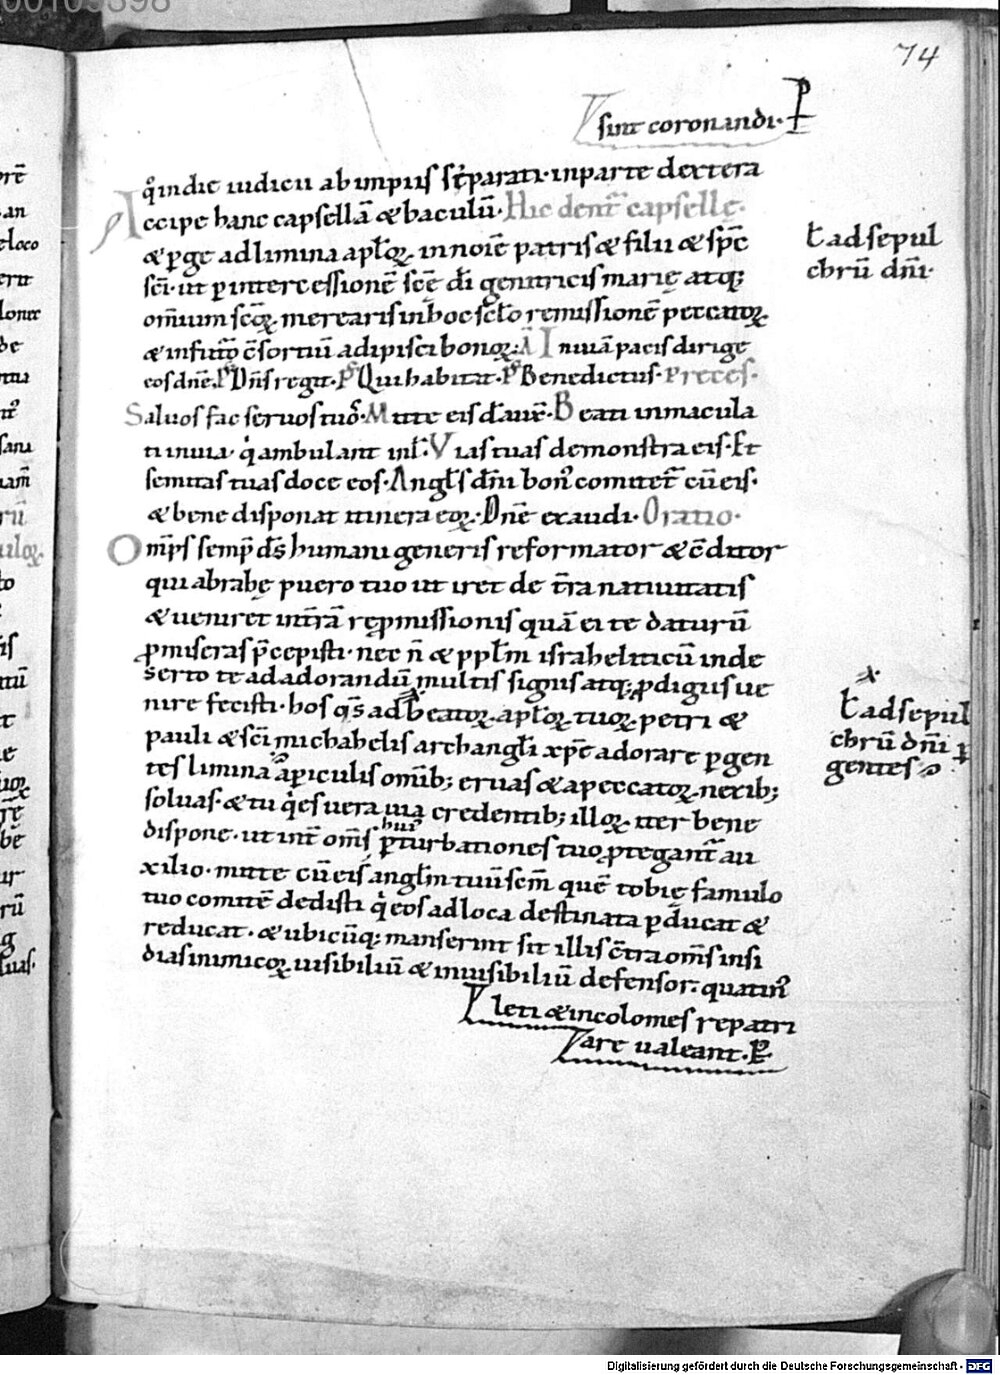 00105398
74
sint coronandi· P
q̊ indie iudicii ab impiis sep̄arati· inparte dextera
Accipe hanc capsellā & baculū· Hic dent̄ capsellę·
& ꝑge adlimina apl̄oꝝ· in noīe patris & filii & sp̄c
sc̄i· ut ꝑ intercessionē sc̄ę dī genitricis marię atq;
om̄ium sc̄oꝝ· merearis inhoc scl̄o remissionē peccatoꝝ·
& infut̄o c̄sortiū adipisci bonoꝝ· A In uiā pacis dirige
eos dn̄e· Ps Dn̄s regit· Ps Qui habitat· Ps Benedictus· Preces·
Saluos fac seruos tuo᷒· Mitte eis dn̄e auxī· Beati inmacula
ti inuia· q̇ ambulant inl̄· Vias tuas demonstra eis· Et
semitas tuas doce eos· Angl̄s dn̄i bon᷒ comitet̄ cū eis·
& bene disponat itinera eoꝝ· Dn̄e exaudi· Oratio·
Om̄ps semp̄ ds̄ humani generis reformator & c̄ditor
qui abrahę puero tuo ut iret de t̄ra natiuitatis
& ueniret int̄rā repromissionis quā ei te daturū
ꝓmiseras p̄cepisti· nec n̄ & ppl̄m israheliticū inde
serto te ad adorandū multis signis atq; ꝓdigiis ue
nire fecisti· hos qs̄ ad beatoꝝ· apl̄oꝝ tuoꝝ petri &
pauli & sc̄i michahelis archangl̄i xp̄e adorare ꝑgen
tes limina a ꝑiculis omīb; eruas & a peccatoꝝ nexib;
soluas· & tu q̇ es uera uia credentib; illoꝝ iter bene
dispone· ut int̄ om̄s hui᷒ ꝑturbationes tuo ꝓtegant̄ au
xilio· mitte cū eis angl̄m tuū sc̄m quē tobię famulo
tuo comitē dedisti q̇ eos ad loca destinata ꝑducat &
reducat· & ubicūq; manserint sit illis c̄tra om̄s insi
dias inimicoꝝ uisibiliū & inuisibiliū defensor· quatin᷒
leti & incolomes repatri
are ualeant· P
ł ad sepul
chrū dn̄i·
ł ad sepul
chrū dn̄i ꝑ
gentes
Digitalisierung gefördert durch die Deutsche Forschungsgemeinschaft - DFG